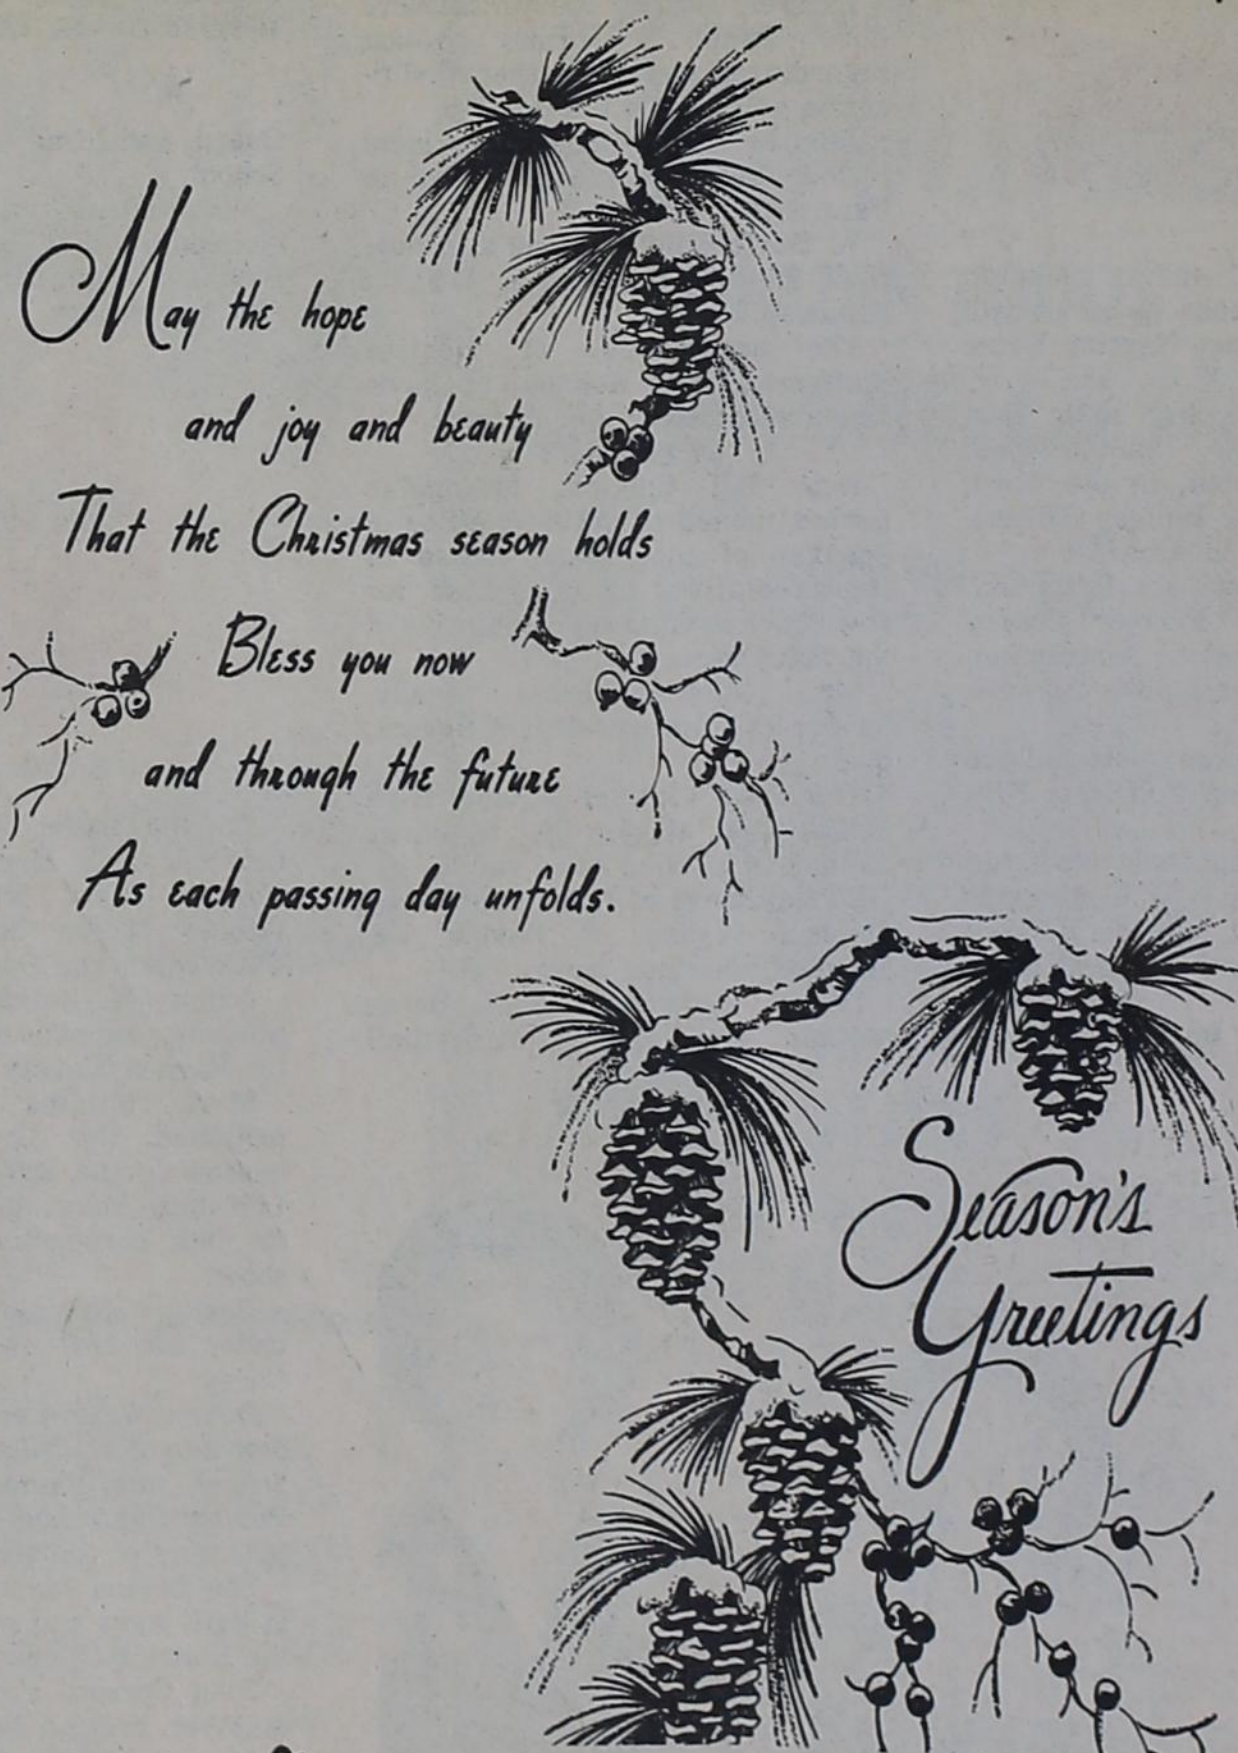 May the hope
and joy and beauty
That the Christmas season holds
Bless you now
and through the future
As each passing day unfolds.
Season's
Greetings